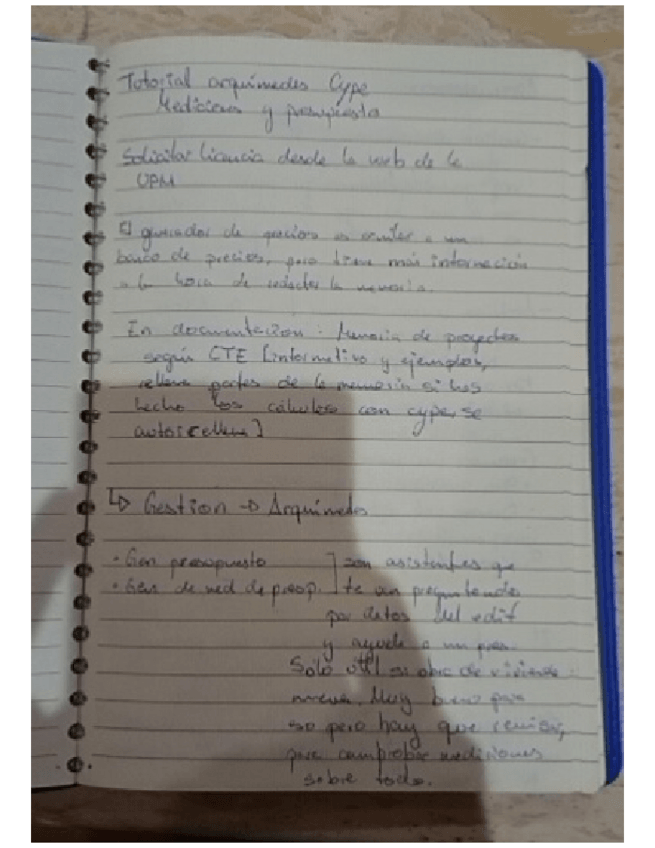 Tutorial arquimedes Cype
Mediciones y presupuesto
Solicitar licencia desde la web de la
UPM
El generador de precios es similar a un
banco de precios, pero tiene más información
a la hora de redactar la memoria.
En documentacion: Memoria de proyectos
según CTE [informativo y ejemplos,
rellena partes de la memoria si has
hecho los cálculos con cype se
autorrellena]
↳ Gestion → Arquimedes
· Gen presupuesto ] son asistentes que
· Gen de med de presup. te van preguntando
por datos del edif
y ayuda a un pres.
Solo útil si obra de vivienda
nueva. Muy bueno para
so pero hay que revisar,
para comprobar mediciones
sobre todo.